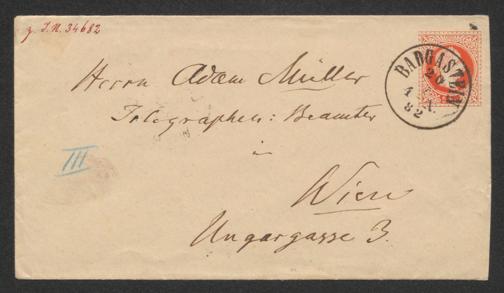 z J.N. 34682
BADGASTEIN
20
4
A.
82
Herrn Adam Müller
Telegraphen: Beamter
in
Wien
Ungargasse 3.
III